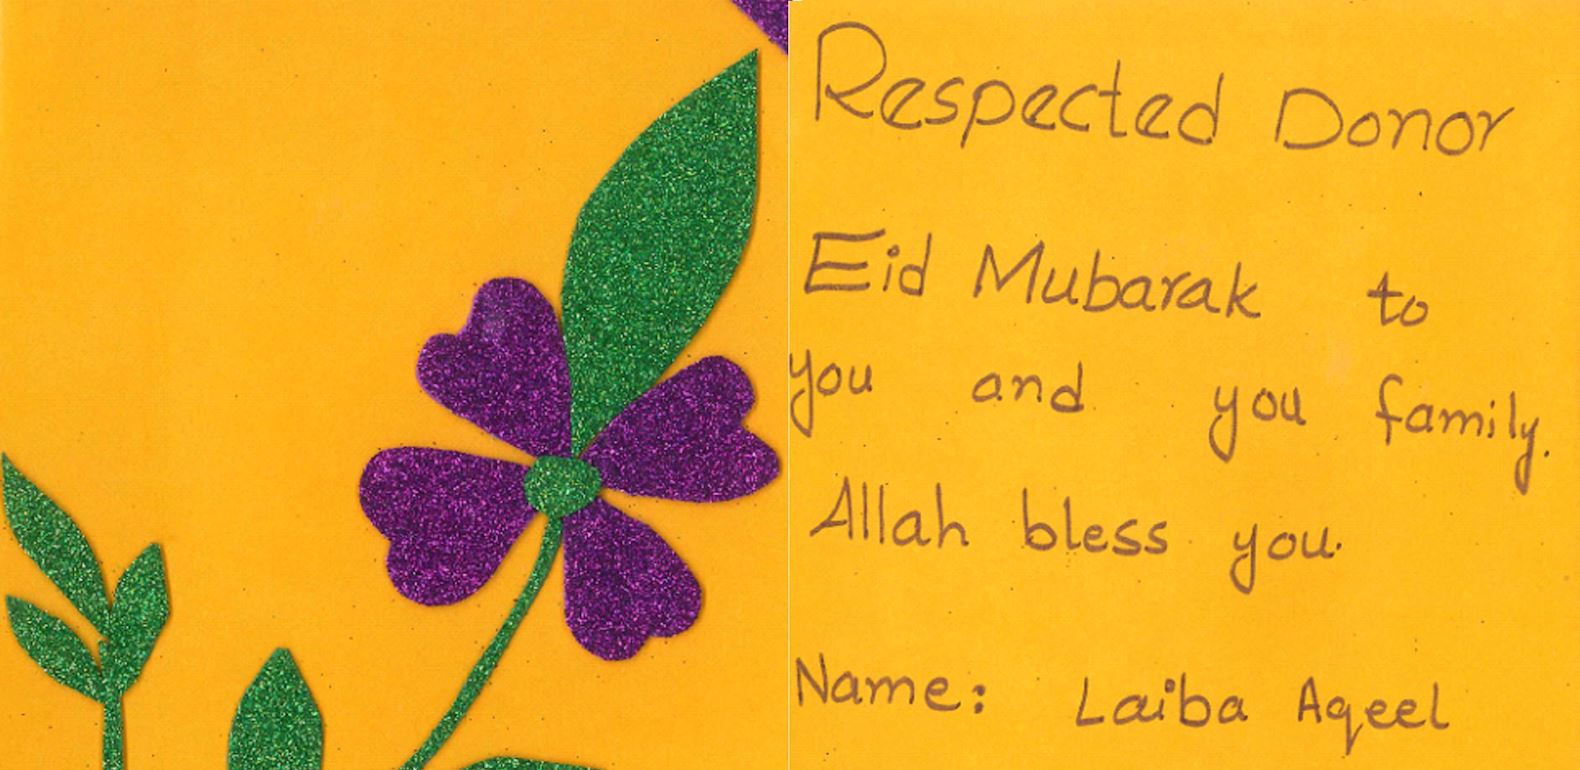 Respected Donor
Eid Mubarak to
you and you family.
Allah bless you.
Name: Laiba Aqeel